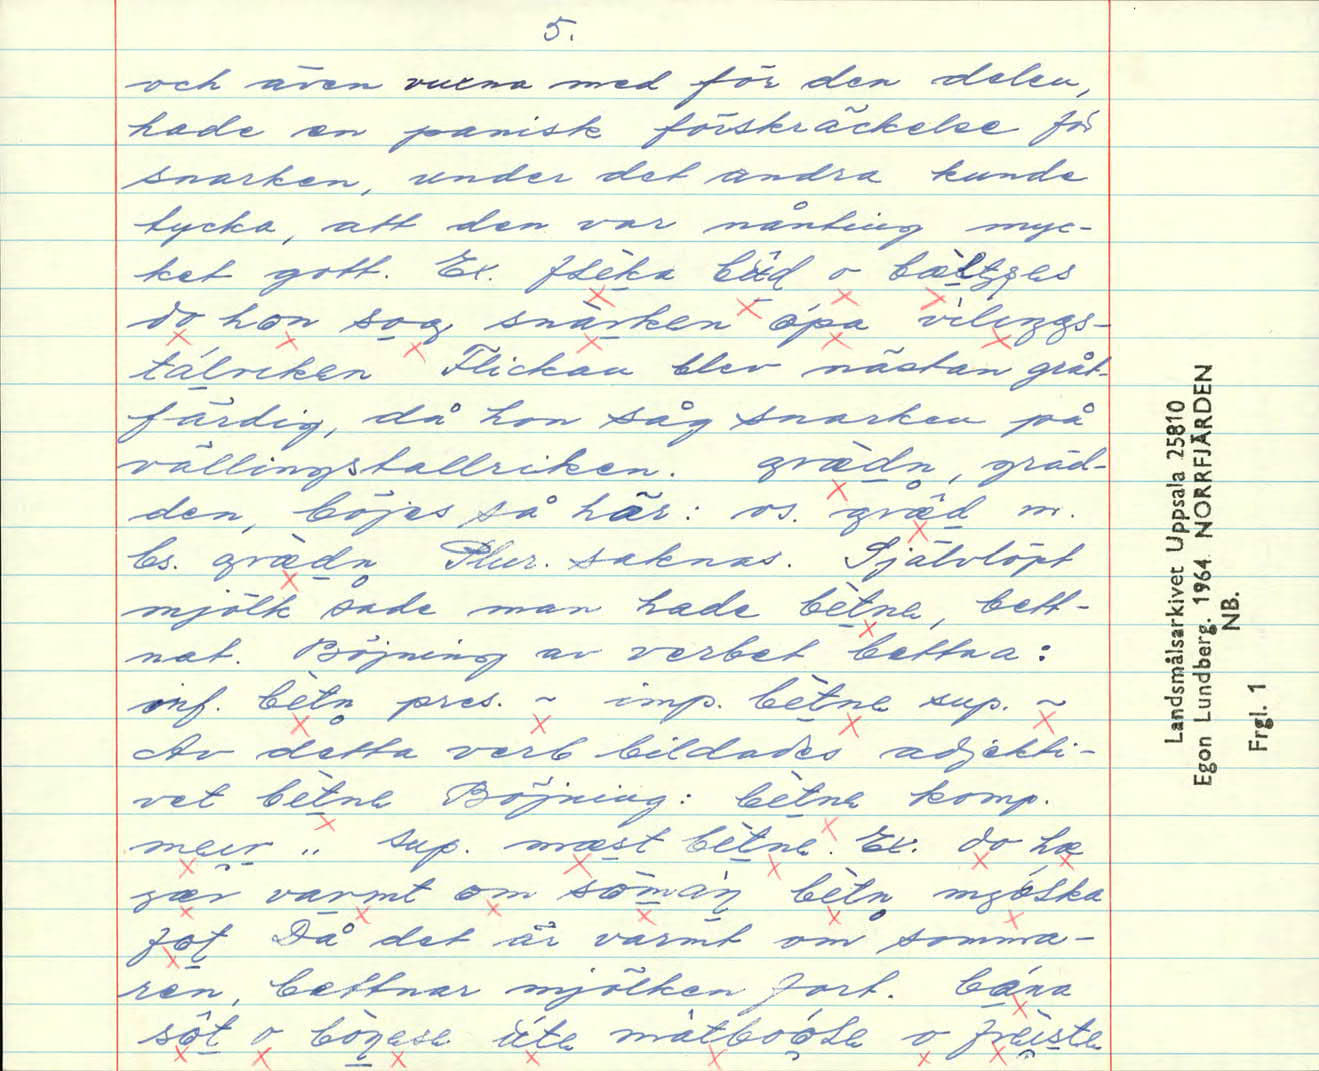 5.
och även vuxna med för den delen,
hade en panisk förskräckelse för
snarken, under det andra kunde
tycka, att den var nånting myc-
ket gott. Ex.
do hon sog snàrken ópa vìlıŋgs-
tálriken Flickan blev nästan gråt-
färdig, då hon såg snarken på
vällingstallriken. grædn, gräd-
den, böjes så här: os. m.
bs. grædn Plur. saknas. Självlöpt
mjölk sade man hade bètne, bett-
nat. Böjning av verbet bettna:
inf. bètn pres. ~ imp. bètne sup. ~
Av detta verb bildades adjekti-
vet bètne Böjning: bètne komp.
meir „ sup. mæst bètne. Ex. do hæ
varmt om bètn
fot Då det är varmt om somma-
ren, bettnar mjölken fort.
söt o ùte o
Landsmålsarkivet Uppsala 25810
Egon Lundberg. 1964. NORRFJÄRDEN
NB.
Frgl. 1